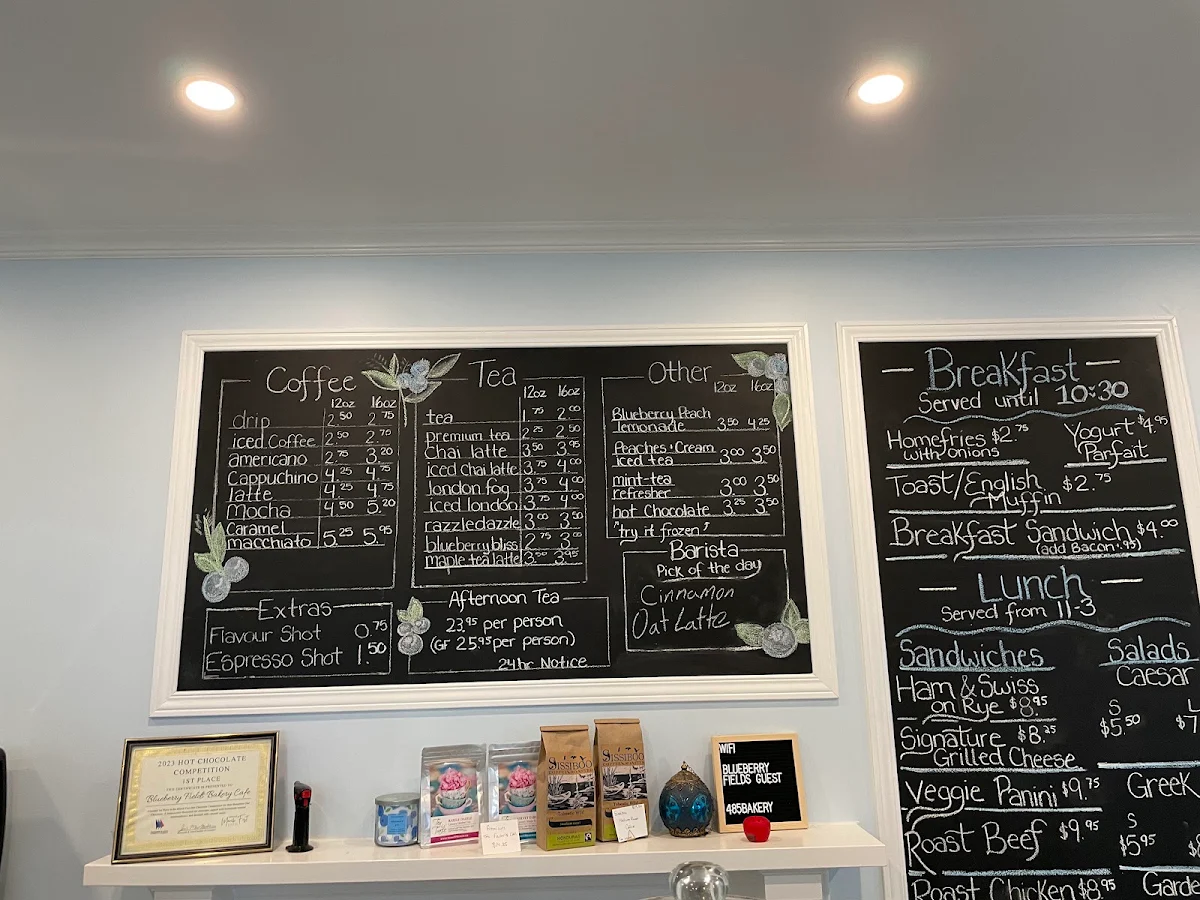 Coffee
12oz 16oz
drip 2.50 2.75
iced Coffee 2.50 2.70
americano 2.75 3.20
Cappuchino 4.25 4.75
latte 4.25 4.75
mocha 4.50 5.20
Caramel
macchiato 5.25 5.95
Extras
Flavour Shot 0.75
Espresso Shot 1.50
Tea
12oz 16oz
tea 1.75 2.00
premium tea 2.25 2.50
Chai latte 3.50 3.95
iced chai latte 3.75 4.00
london fog 3.75 4.00
iced london 3.75 4.00
razzledazzle 3.00 3.50
blueberry bliss 2.75 3.00
maple tea latte 3.50 3.95
Afternoon Tea
23.95 per person
(GF 25.95 per person)
24hr Notice
Other
12oz 16oz
Blueberry Peach
lemonade 3.50 4.25
Peaches & Cream
iced tea 3.00 3.50
mint-tea
refresher 3.00 3.50
hot Chocolate 3.25 3.50
"try it frozen"
Barista
Pick of the day
Cinnamon
Oat Latte
Breakfast
Served until 10:30
Homefries $2.75
with onions
Yogurt $4.95
Parfait
Toast/English
Muffin $2.75
Breakfast Sandwich $4.00
(add Bacon .95)
Lunch
Served from 11-3
Sandwiches
Ham & Swiss
on Rye $8.95
Signature $8.25
Grilled Cheese
Veggie Panini $9.75
Roast Beef $9.95
Roast Chicken $8.95
Salads
Caesar
S L
$5.50 $7
Greek
S
$5.95
Garde
2023 HOT CHOCOLATE
COMPETITION
1ST PLACE
Blueberry Fields Bakery Cafe
SISSIBOO
SISSIBOO
WIFI
BLUEBERRY
FIELDS GUEST
485BAKERY